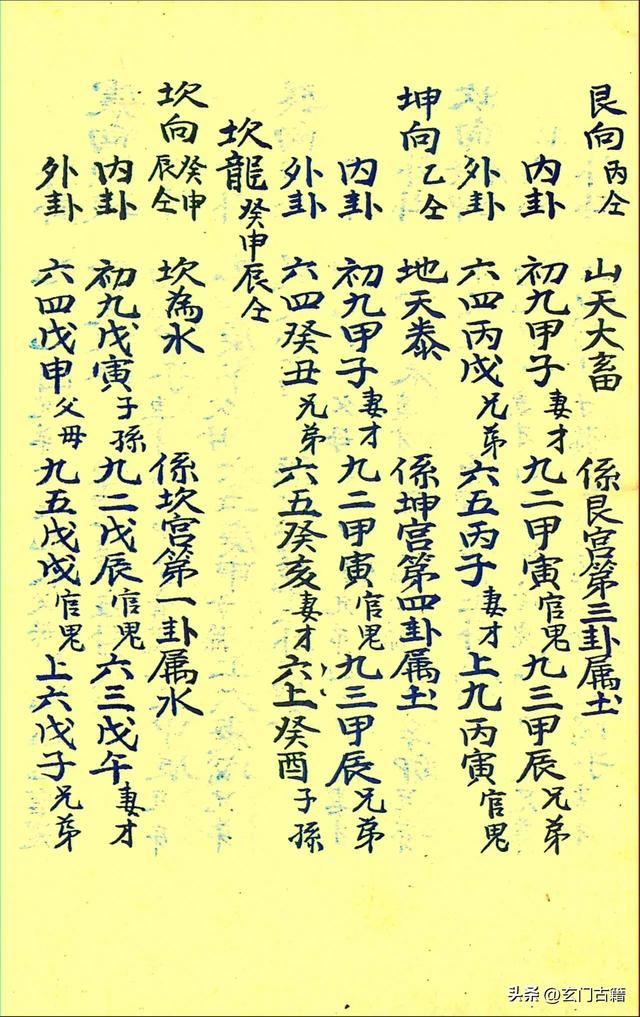 艮向丙仝　山天大畜　係艮宫第三卦属土
内卦　初九甲子妻才九二甲寅官鬼九三甲辰兄弟
外卦　六四丙戌兄弟六五丙子妻才上九丙寅官鬼
坤向乙仝　地天泰　係坤宫第四卦属土
内卦　初九甲子妻才九二甲寅官鬼九三甲辰兄弟
外卦　六四癸丑兄弟六五癸亥妻才六上癸酉子孫
坎龍癸申辰仝
坎向癸申辰仝　坎為水　係坎宫第一卦属水
内卦　初九戊寅子孫九二戊辰官鬼六三戊午妻才
外卦　六四戊申父母九五戊戌官鬼上六戊子兄弟
头条 @玄门古籍